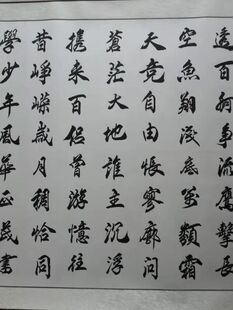 透百舸爭流鷹擊長
空魚翔淺底萬類霜
天竞自由悵寥廓問
蒼茫大地誰主沉浮
携来百侣曾游憶往
昔崢嶸歲月稠恰同
學少年風華正茂書